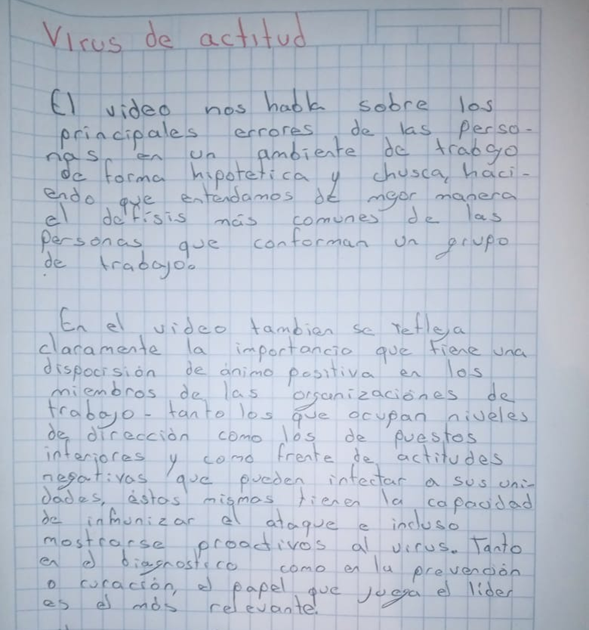 Virus de actitud
El video nos habla sobre los
principales errores de las perso-
nas, en un ambiente de trabajo
de forma hipotetica y chusca, haci-
endo que entendamos de mejor manera
el defisis más comunes de las
personas que conforman un grupo
de trabajo.
En el video tambien se refleja
claramente la importancia que tiene una
disposición de ánimo positiva en los
miembros de las organizaciónes de
trabajo - tanto los que ocupan niveles
de dirección como los de puestos
interiores y como frente de actitudes
negativas que pueden infectar a sus uni-
dades, éstas mismas tienen la capacidad
de inmunizar el ataque e incluso
mostrarse proactivos al virus. Tanto
en el diagnostico como en la prevención
o curación, el papel que juega el líder
es el más relevante.